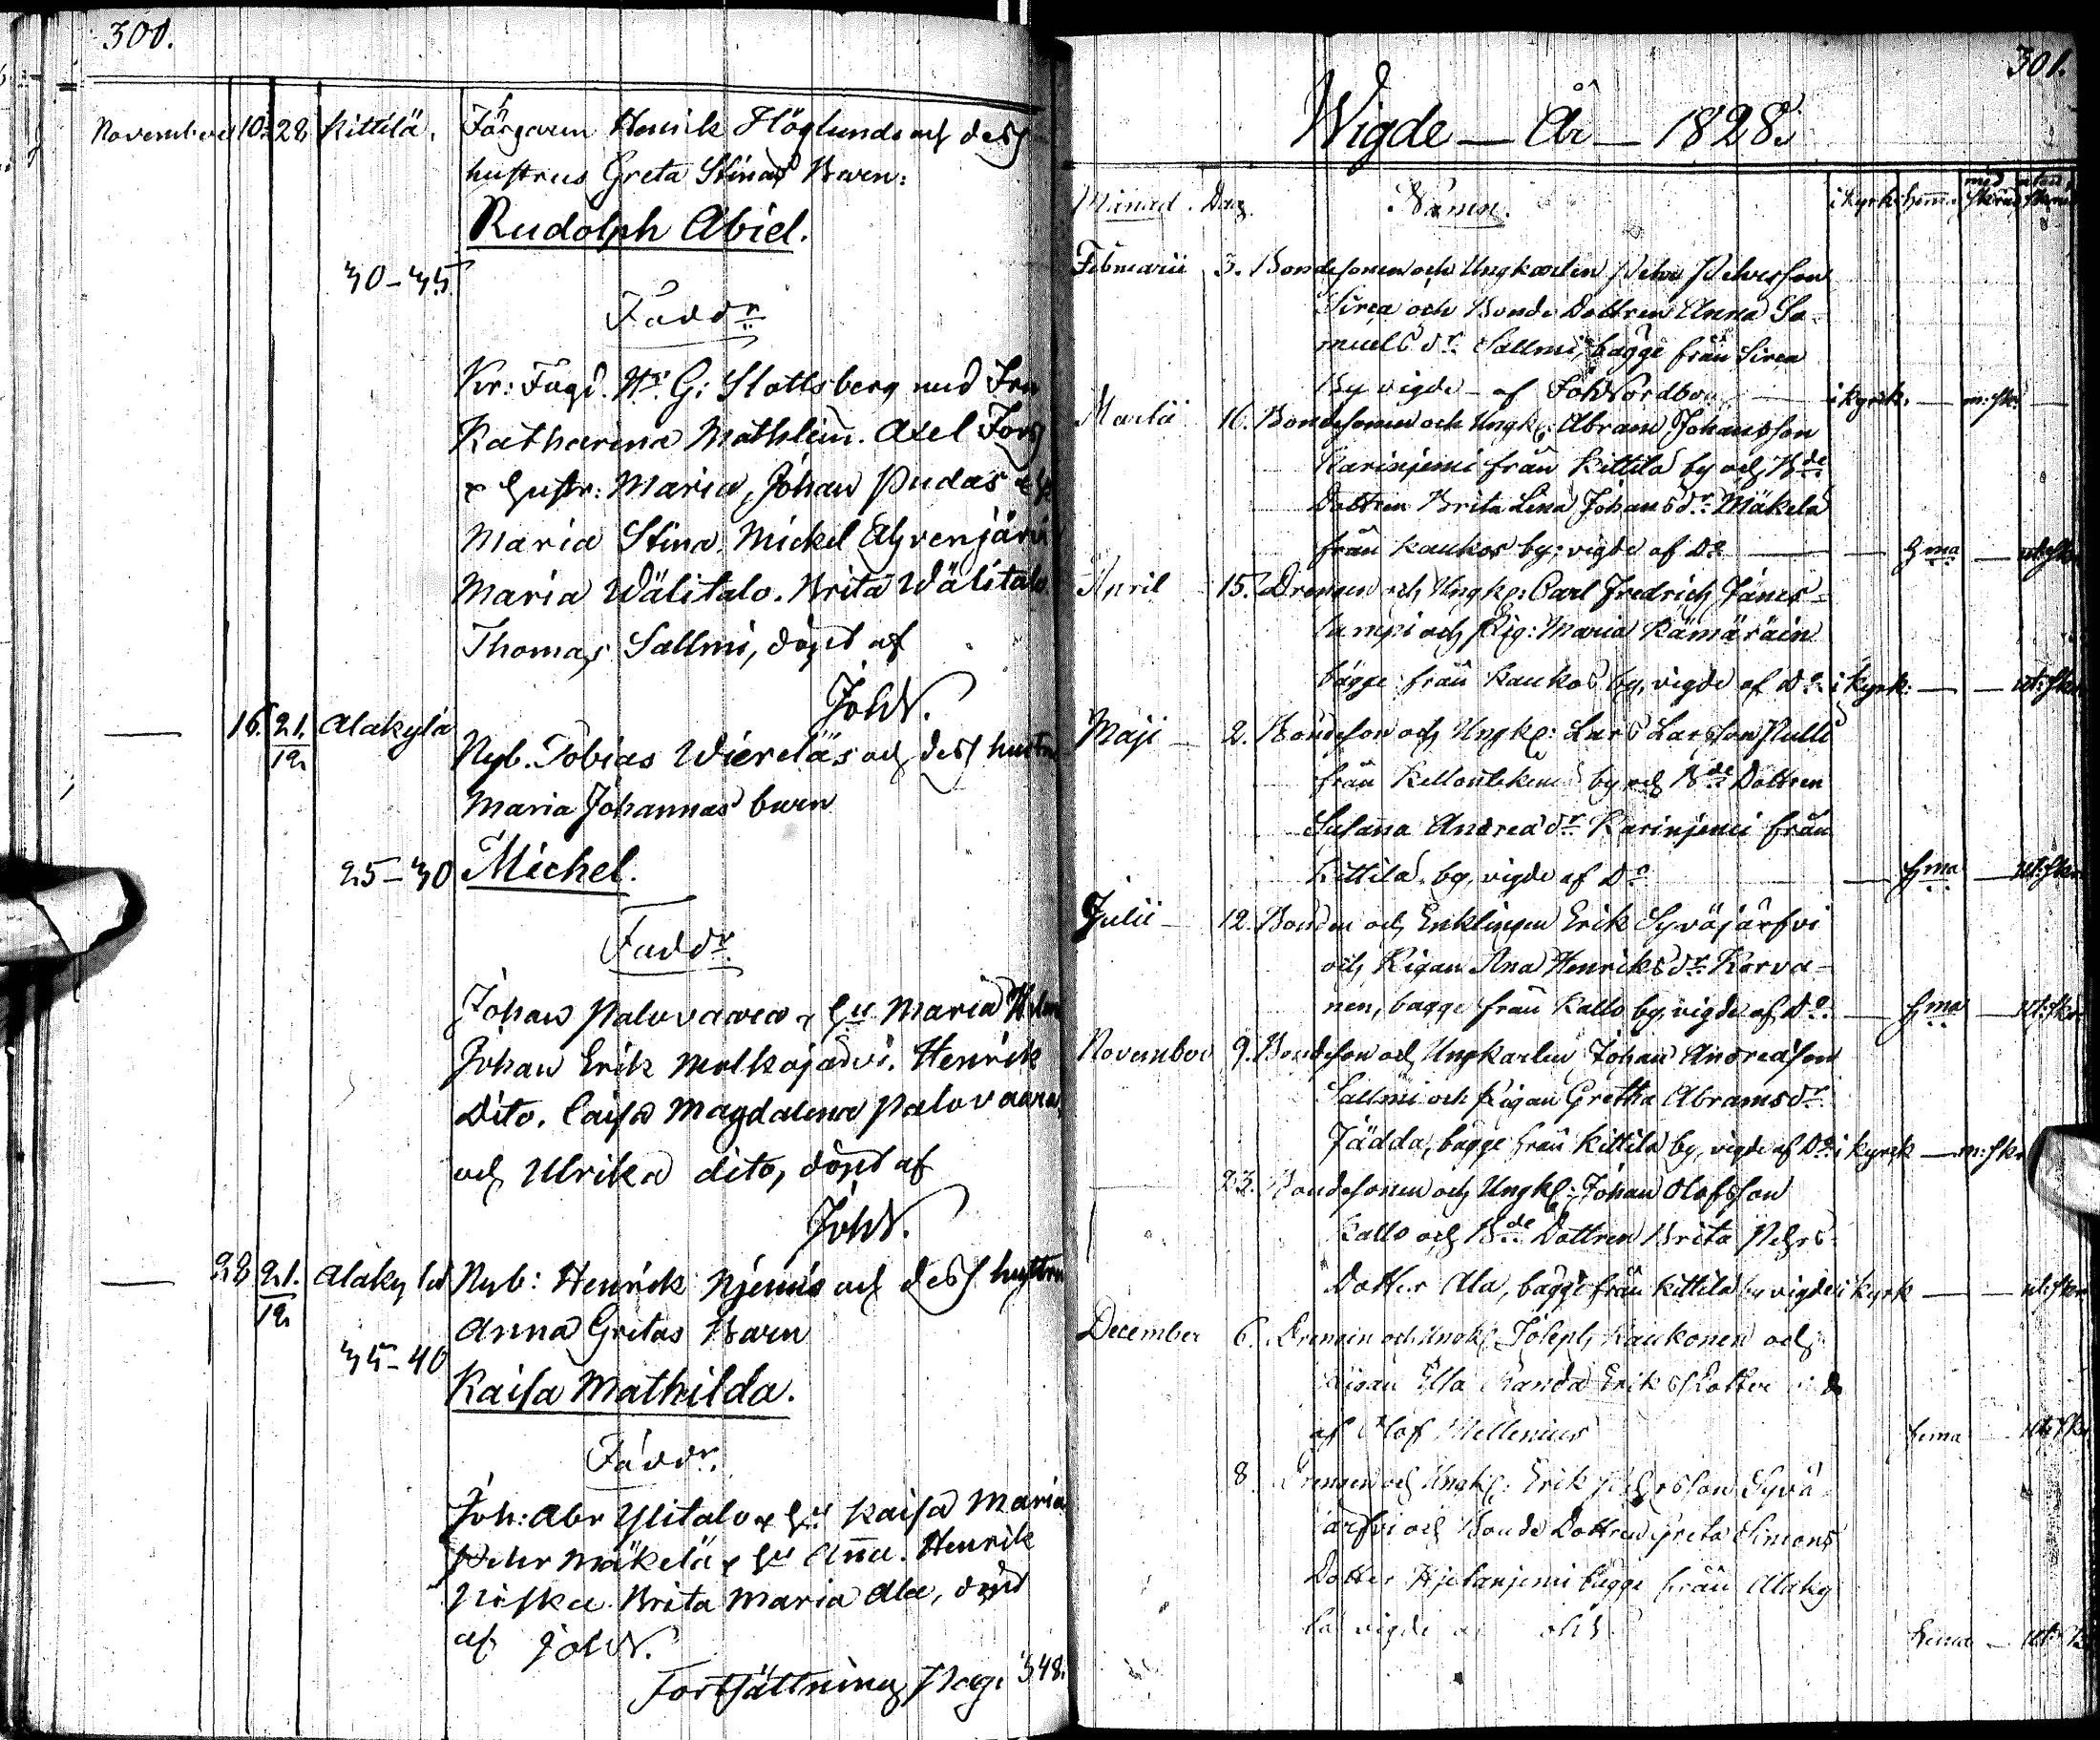 300.
November 10. 28 Kittilä. Färgaren Henrik Höglunds och dess
hustrus Greta Stinas Barn:
Rudolph Abiel.
30-35.
Faddr
Kr: Fogd. Hr G: Slottsberg med Fru
Katharina Mathlein. Axel Fors
& hustr: Maria, Johan Pudas &
Maria Stina. Mickel Ahvenjärvi
Maria Wälitalo. Brita Wälitalo
Thomas Sallmi, döpt af
JohN.
16. 21/12 Alakylä
Nyb. Tobias Wiereläs och dess hustru
Maria Johannas barn
25-30 Michel.
Faddr.
Johan Palovaara & Hu Maria
Johan Erik Molkojärvi. Henrik
Dito. Caisa Magdalena Palovaara
och Ulrika dito, döpt af
JohN.
28 21/12 Alakylä Nyb: Henrik Njemis och dess hustru
Anna Gretas Barn
35-40
Kaisa Mathilda.
Faddr.
Joh: Abr Ylitalo & Hu Kaisa Maria
Pehr Mäkelä & Hu Anna. Henrik
Niska. Brita Maria Ala, döpt
af JohN.
Fortsättning Pag. 348.
301.
Wigde — År — 1828.
Månad. Dag. Namn. i Kyrk. hemma med skrud utan skrud
Februarii 3. Bondesonen och Ungkarlen Pehr Pehrsson
Sirca och Bonde Dottren Anna Sa-
muels dr Sallmi, bägge från Sirca
By vigde af JohNordbo i kyrk. — m: skr
Martii 16. Bondesonen och Ungk: Abram Johansson
Karinjemi från Kittilä by och Bde
Dottren Brita Lena Johans dr Mäkelä
från Kaukos by; vigde af Do — hma — ut: skr
April 15. Drengen och Ungk: Carl Fredrich Jänes-
lampi och Pig: Maria Kämäräin
bägge från Kaukos by, vigde af Do i kyrk: — ut: skr
Maji — 2. Bondeson och Ungk: Lars Larsson Pulli
från Kellontekemä by och Bde Dottren
Susanna Andrea dr Karinjemi från
Kittilä by, vigde af Do — hma — ut: skr
Julii — 12. Bonden och Enklingen Erik Syväjärfvi
och Pigan Ana Henriks dr Korva-
nen, bägge från Kallo by, vigde af Do. — hma — ut: skr
November 9. Bondeson och Ungkarlen Johan Andreason
Sallmi och Pigan Gretha Abrams dr
Jädda, bägge från Kittilä by, vigde af Do i kyrk — m: skr
23. Bondesonen och Ungk: Johan Olofsson
Kallo och Bde Dottren Brita Pehrs
Dotter Ala, bägge från Kittilä by vigde i kyrk — ut: skr
December 6. Drengen och Ungk: Joseph Kaukonen och
Pigan Ella Eriks Dotter
af Olof Mellenius hema ut: skr
8 Drengen och Ungk: Erik Pehrsson Syvä
ärfvi och Bonde Dottren Greta Simons
Dotter Hjetanjemi bägge från Alaky
lä vigde hema — ut: